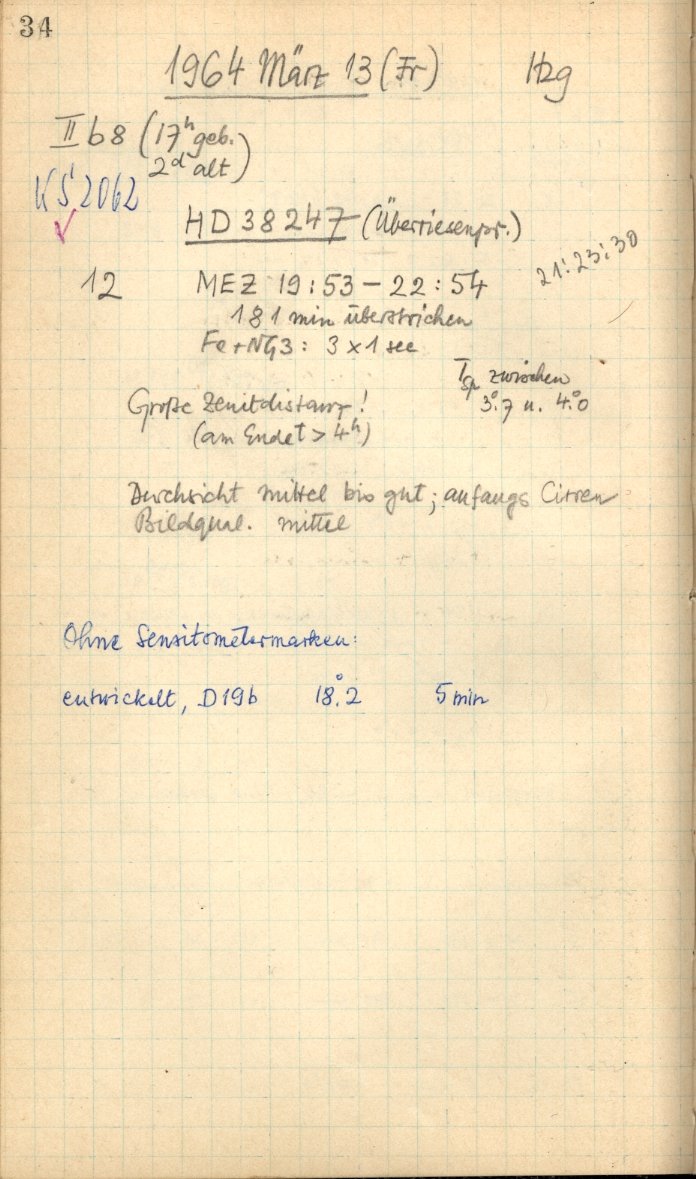 34
1964 März 13 (Fr) Hzg
II b 8 (17h geb.
2d alt)
KS 2062
HD 38247 (Überriesenpr.)
21:23:30
12 MEZ 19:53 – 22:54
181 min überstrichen
Fe + NG3: 3 x 1 sec
Tsp zwischen
3°.7 u. 4°.0
Große Zenitdistanz!
(am Ende t > 4h)
Durchsicht mittel bis gut; anfangs Cirren
Bildqual. mittel
Ohne Sensitometermarken:
entwickelt, D19b 18°.2 5 min